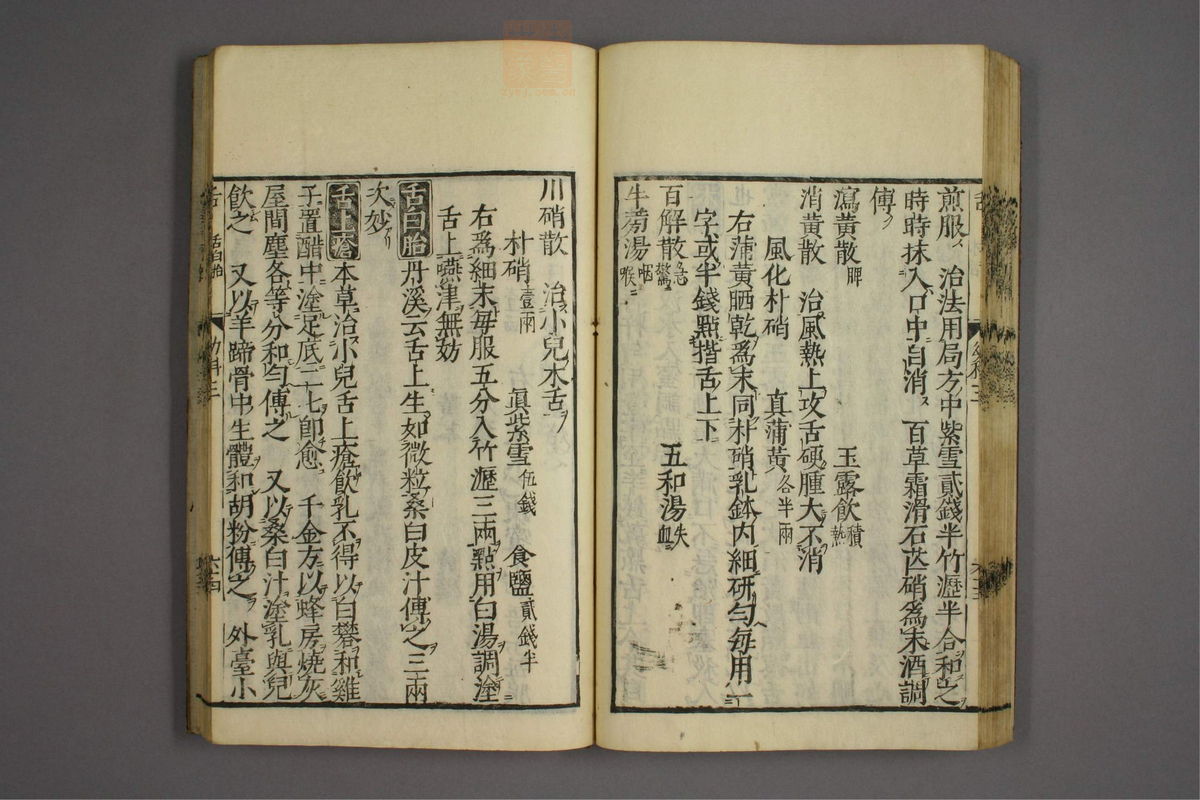 煎服 治法用局方中紫雪貳錢半竹瀝半合和之
時時抹入口中自消 百草霜滑石芒硝爲末酒調
傅
瀉黃散脾 玉露飲積熱
消黃散 治風熱上攻舌硬腫大不消
風化朴硝 真蒲黃各半兩
右蒲黃晒乾爲末同朴硝乳鉢内細研勻每用一
字或半錢點揩舌上下
百解散急驚 五和湯失血
牛蒡湯咽喉
川硝散 治小兒木舌
朴硝壹兩 眞紫雪伍錢 食鹽貳錢半
右爲細末每服五分入竹瀝三兩點用白湯調塗
舌上嚥津無妨
舌白胎 丹溪云舌上生如微粒桑白皮汁傅之三兩
次妙
舌上瘡 本草治小兒舌上瘡飲乳不得以白礬和雞
子置醋中塗足底二七卽愈 千金方以蜂房燒灰
屋間塵各等分和勻傅之 又以桑白汁塗乳與兒
飲之 又以羊蹄骨中生髓和胡粉傅之 外臺小
舌 舌白胎 幼科三 六十四